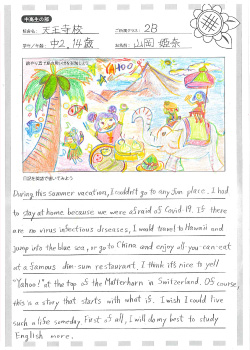 中高生の部
校舎名: 天王寺校
ご所属クラス: 2B
学年/年齢: 中2, 14歳
お名前: 山岡 姫奈
YAHOO
During this summer vacation, I couldn't go to any fun place. I had
to stay at home because we were afraid of Covid-19. If there
are no virus infectious diseases, I would travel to Hawaii and
jump into the blue sea, or go to China and enjoy all-you-can-eat
at a famous dim-sum restaurant. I think it's nice to yell
"Yahoo!" at the top of the Matterhorn in Switzerland. Of course,
this is a story that starts with what if. I wish I could live
such a life someday. First of all, I will do my best to study
English more.